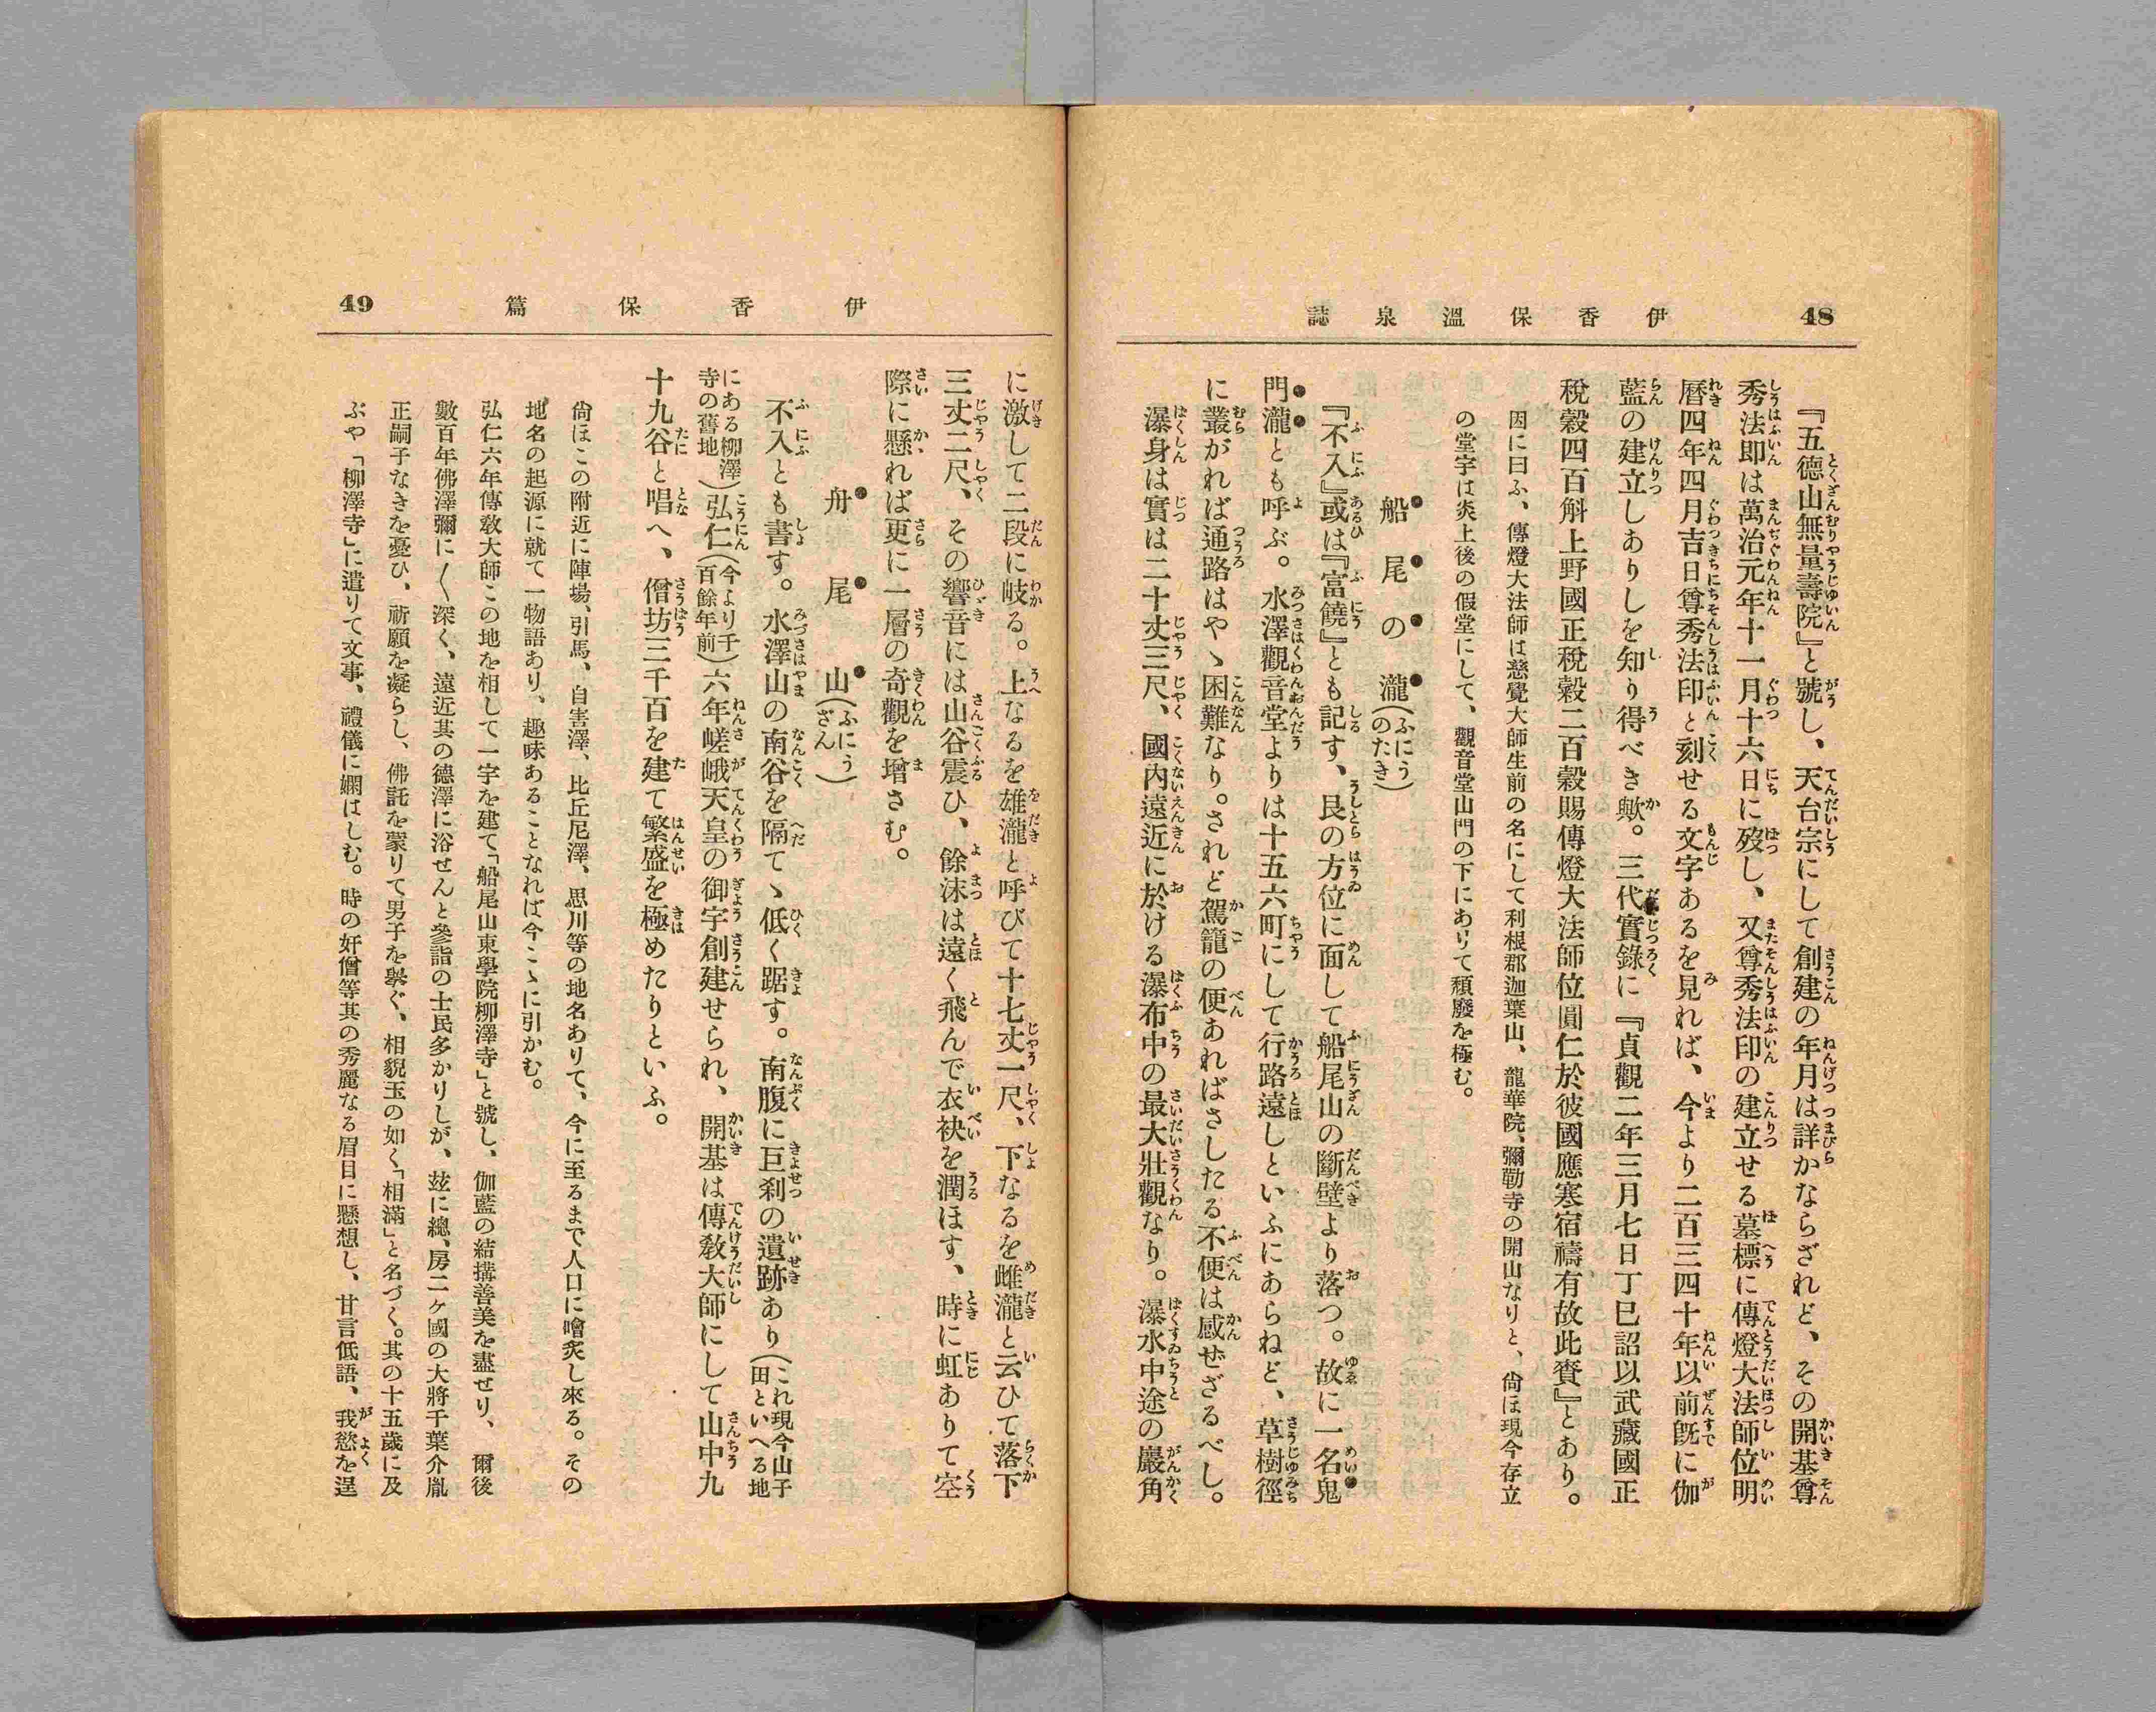 48
伊香保溫泉誌
『五德山無量壽院』と號し、天台宗にして創建の年月は詳かならざれど、その開基尊
秀法即は萬治元年十一月十六日に歿し、又尊秀法印の建立せる墓標に傳燈大法師位明
曆四年四月吉日尊秀法印と刻せる文字あるを見れば、今より二百三四十年以前旣に伽
藍の建立しありしを知り得べき歟。三代實錄に『貞觀二年三月七日丁巳詔以武藏國正
稅穀四百斛上野國正稅穀二百穀賜傳燈大法師位圓仁於彼國應寒宿禱有故此賚』とあり。
因に曰ふ、傳燈大法師は慈覺大師生前の名にして利根郡迦葉山、龍華院、彌勒寺の開山なりと、尙ほ現今存立
の堂宇は炎上後の假堂にして、觀音堂山門の下にありて頽廢を極む。
船尾の瀧(ふにうのたき)
『不入』或は『富饒』とも記す、艮の方位に面して船尾山の斷壁より落つ。故に一名鬼
門瀧とも呼ぶ。水澤觀音堂よりは十五六町にして行路遠しといふにあらねど、草樹徑
に叢がれば通路はやゝ困難なり。されど駕籠の便あればさしたる不便は感ぜざるべし。
瀑身は實は二十丈三尺、國內遠近に於ける瀑布中の最大壯觀なり。瀑水中途の巖角
49
伊香保篇
に激して二段に岐る。上なるを雄瀧と呼びて十七丈一尺、下なるを雌瀧と云ひて落下
三丈二尺、その響音には山谷震ひ、餘沫は遠く飛んで衣袂を潤ほす、時に虹ありて空
際に懸れば更に一層の奇觀を增さむ。
舟尾山(ふにうざん)
不入とも書す。水澤山の南谷を隔てゝ低く踞す。南腹に巨刹の遺跡あり(これ現今山子田といへる地
にある柳澤寺の舊地)弘仁(今より千百餘年前)六年嵯峨天皇の御宇創建せられ、開基は傳敎大師にして山中九
十九谷と唱へ、僧坊三千百を建て繁盛を極めたりといふ。
尙ほこの附近に陣場、引馬、自害澤、比丘尼澤、思川等の地名ありて、今に至るまで人口に噲炙し來る。その
地名の起源に就て一物語あり、趣味あることなれば今こゝに引かむ。
弘仁六年傳敎大師この地を相して一宇を建て「船尾山東學院柳澤寺」と號し、伽藍の結搆善美を盡せり、爾後
數百年佛澤彌に〱深く、遠近其の德澤に浴せんと參詣の士民多かりしが、玆に總、房二ヶ國の大將千葉介胤
正嗣子なきを憂ひ、祈願を凝らし、佛託を蒙りて男子を擧ぐ、相貌玉の如く「相滿」と名づく。其の十五歲に及
ぶや「柳澤寺」に遣りて文事、禮儀に嫻はしむ。時の奸僧等其の秀麗なる眉目に懸想し、甘言低語、我慾を逞